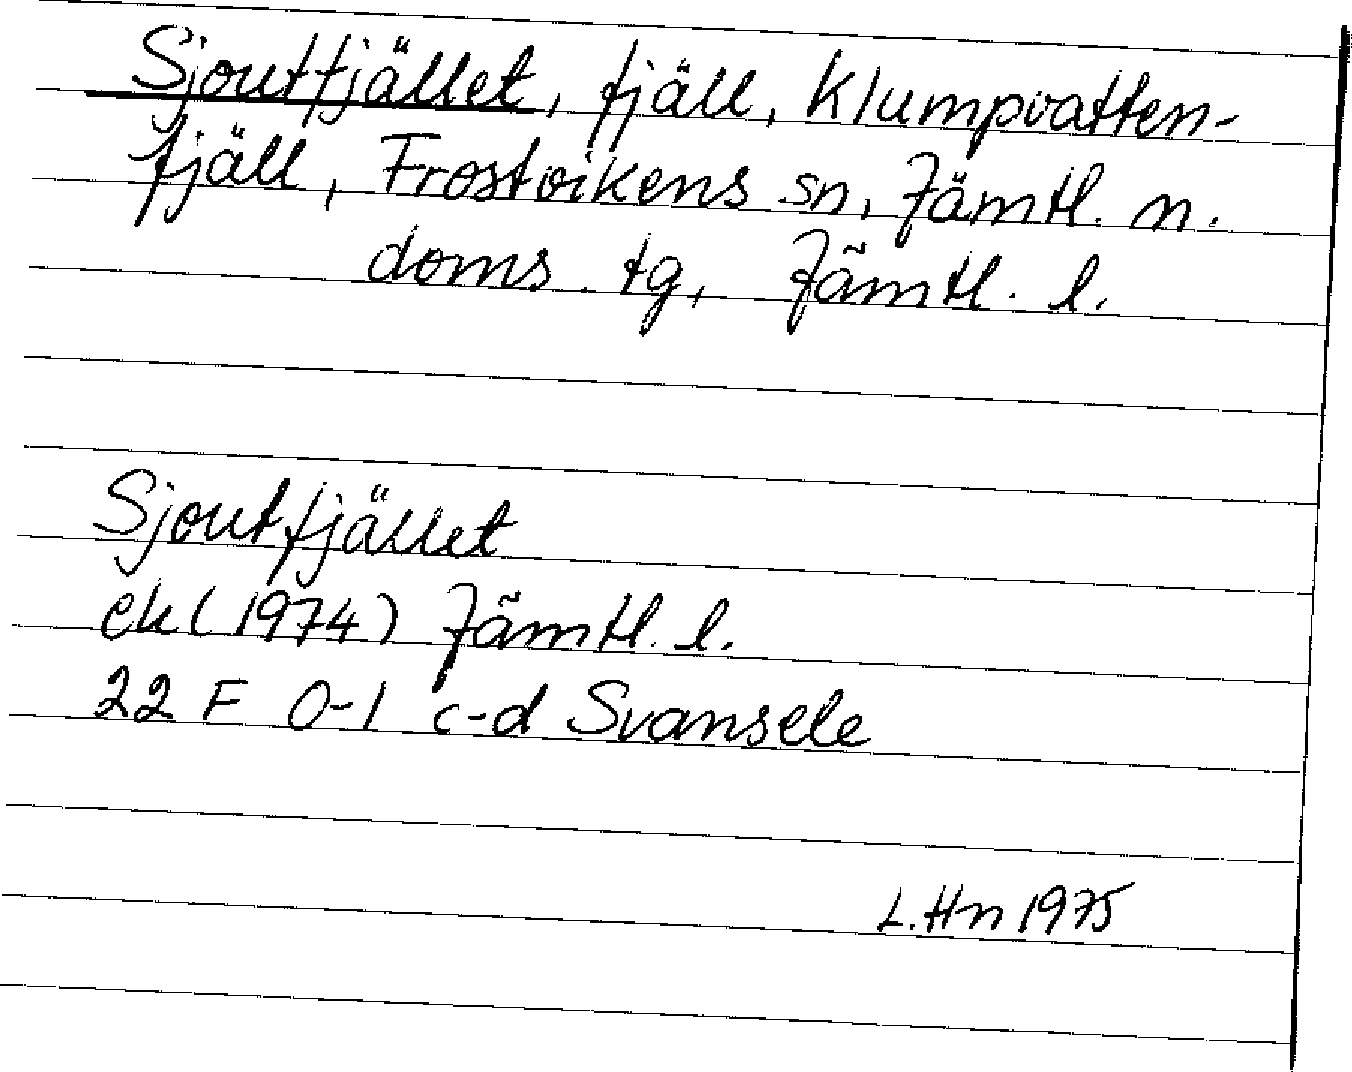 Sjoutfjället, fjäll, Klumpvatten-
fjäll, Frostvikens sn, Jämtl. n.
doms. tg, Jämtl. l.
Sjoutfjället
ek (1974) Jämtl. l.
22 F 0-1 c-d Svansele
L. Hn 1975